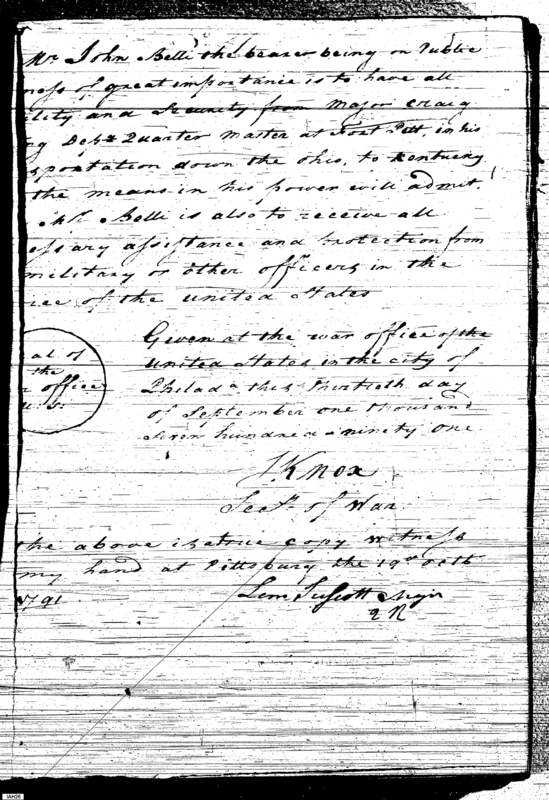 Mr John Belli the bearer being on Public
ness of great importance is to have all
ility and Security from Major Craig
ng Depy Quarter Master at Fort Pitt, in his
sportation down the ohio, to Kentucky
the means in his power will admit.
Mr Belli is also to receive all
essary assistance and protection from
military or other officers in the
ice of the united States
Given at the war office of the
United States in the city of
Philada this thirtieth day
of September one thousand
Seven hundred & ninety one
al of
the
r office
U. S.
J Knox
Secy. of War
the above is a true copy witness
my hand at Pittsburg the 19th Octb
1791
Majr
2 R
IAH26